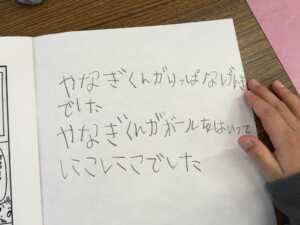 やなぎくんがりっぱなげんき
でした
やなぎくんがボールをはいって
にこにこでした